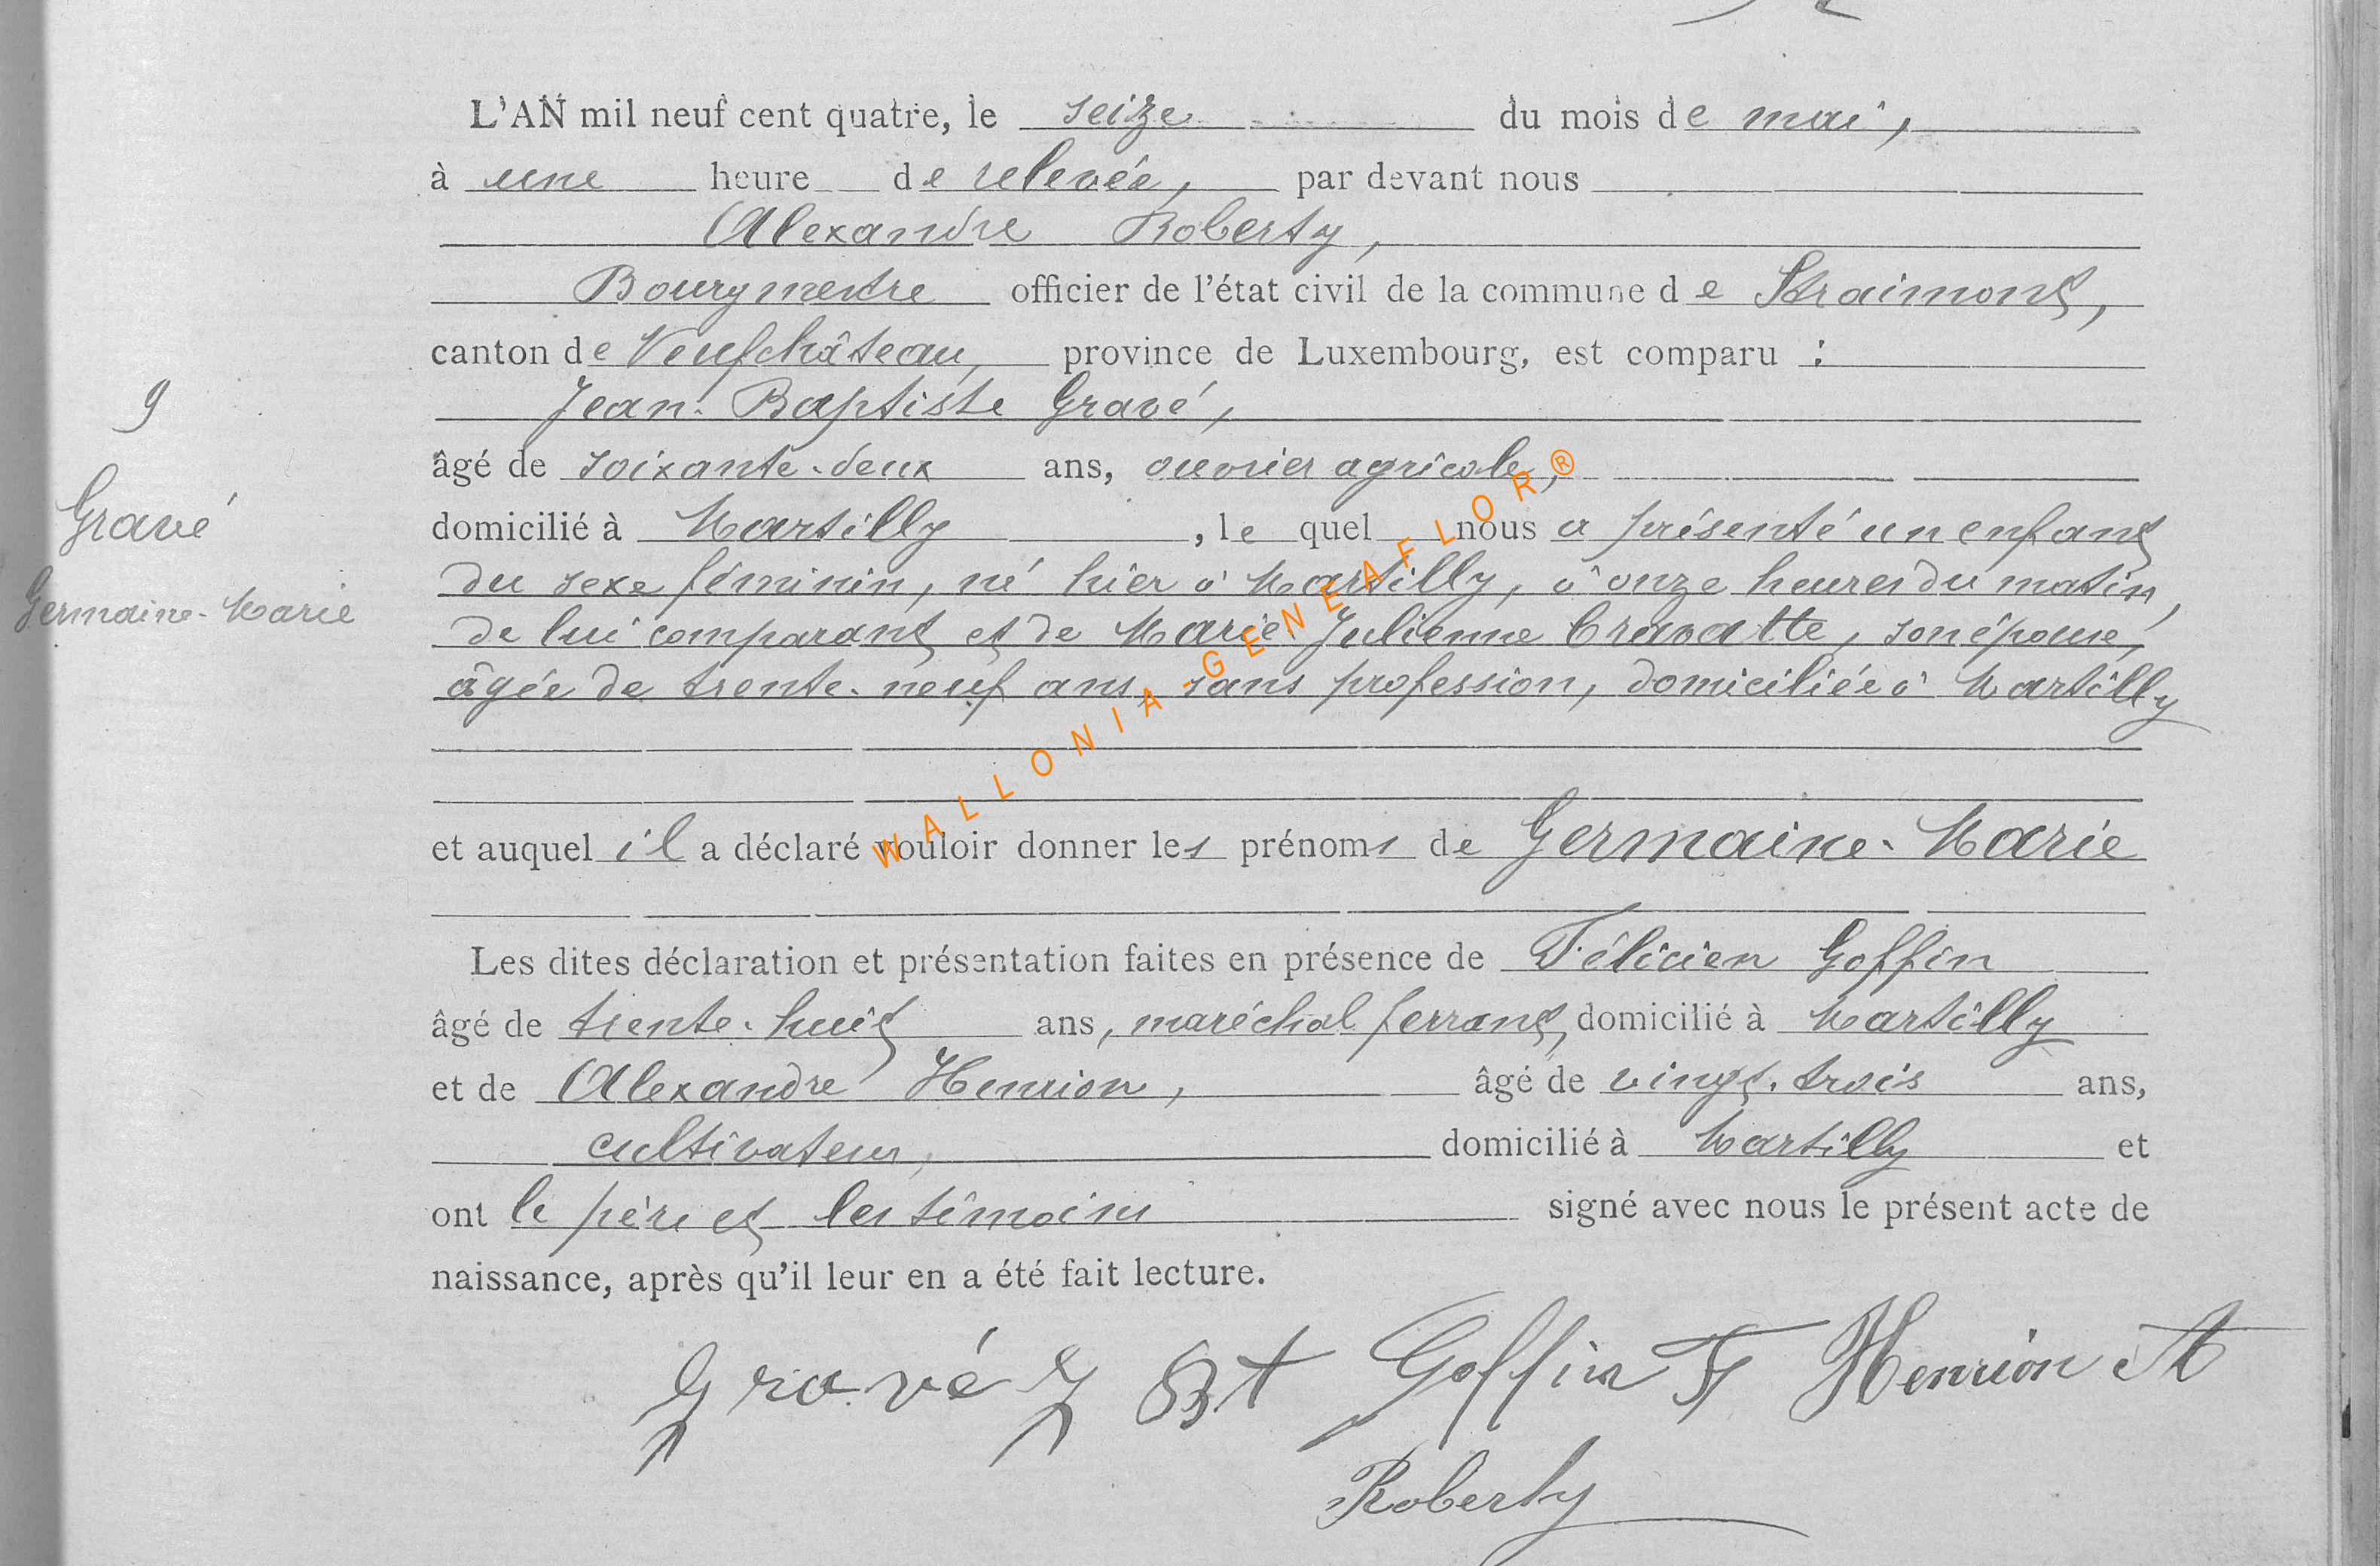 L'AN mil neuf cent quatre, le seize du mois de mai,
à une heure de relevée, par devant nous
Alexandre Roberty,
Bourgmestre officier de l'état civil de la commune de Straimont,
canton de Neufchâteau, province de Luxembourg, est comparu :
Jean-Baptiste Gravé,
9
âgé de soixante-deux ans, ouvrier agricole,
Gravé
domicilié à Martilly, le quel nous a présenté un enfant
Germaine-Marie
du sexe féminin, né hier à Martilly, à onze heures du matin,
de lui comparant et de Marie-Julienne Cravatte, son épouse,
âgée de trente-neuf ans, sans profession, domiciliée à Martilly
WALLONIA-GENEAFLOR®
et auquel il a déclaré vouloir donner les prénoms de Germaine-Marie
Les dites déclaration et présentation faites en présence de Félicien Goffin
âgé de trente-huit ans, maréchal ferrant, domicilié à Martilly
et de Alexandre Henrion, âgé de vingt-trois ans,
cultivateur, domicilié à Martilly et
ont le père et les témoins signé avec nous le présent acte de
naissance, après qu'il leur en a été fait lecture.
Gravé J Bt Goffin F Henrion A
Roberty